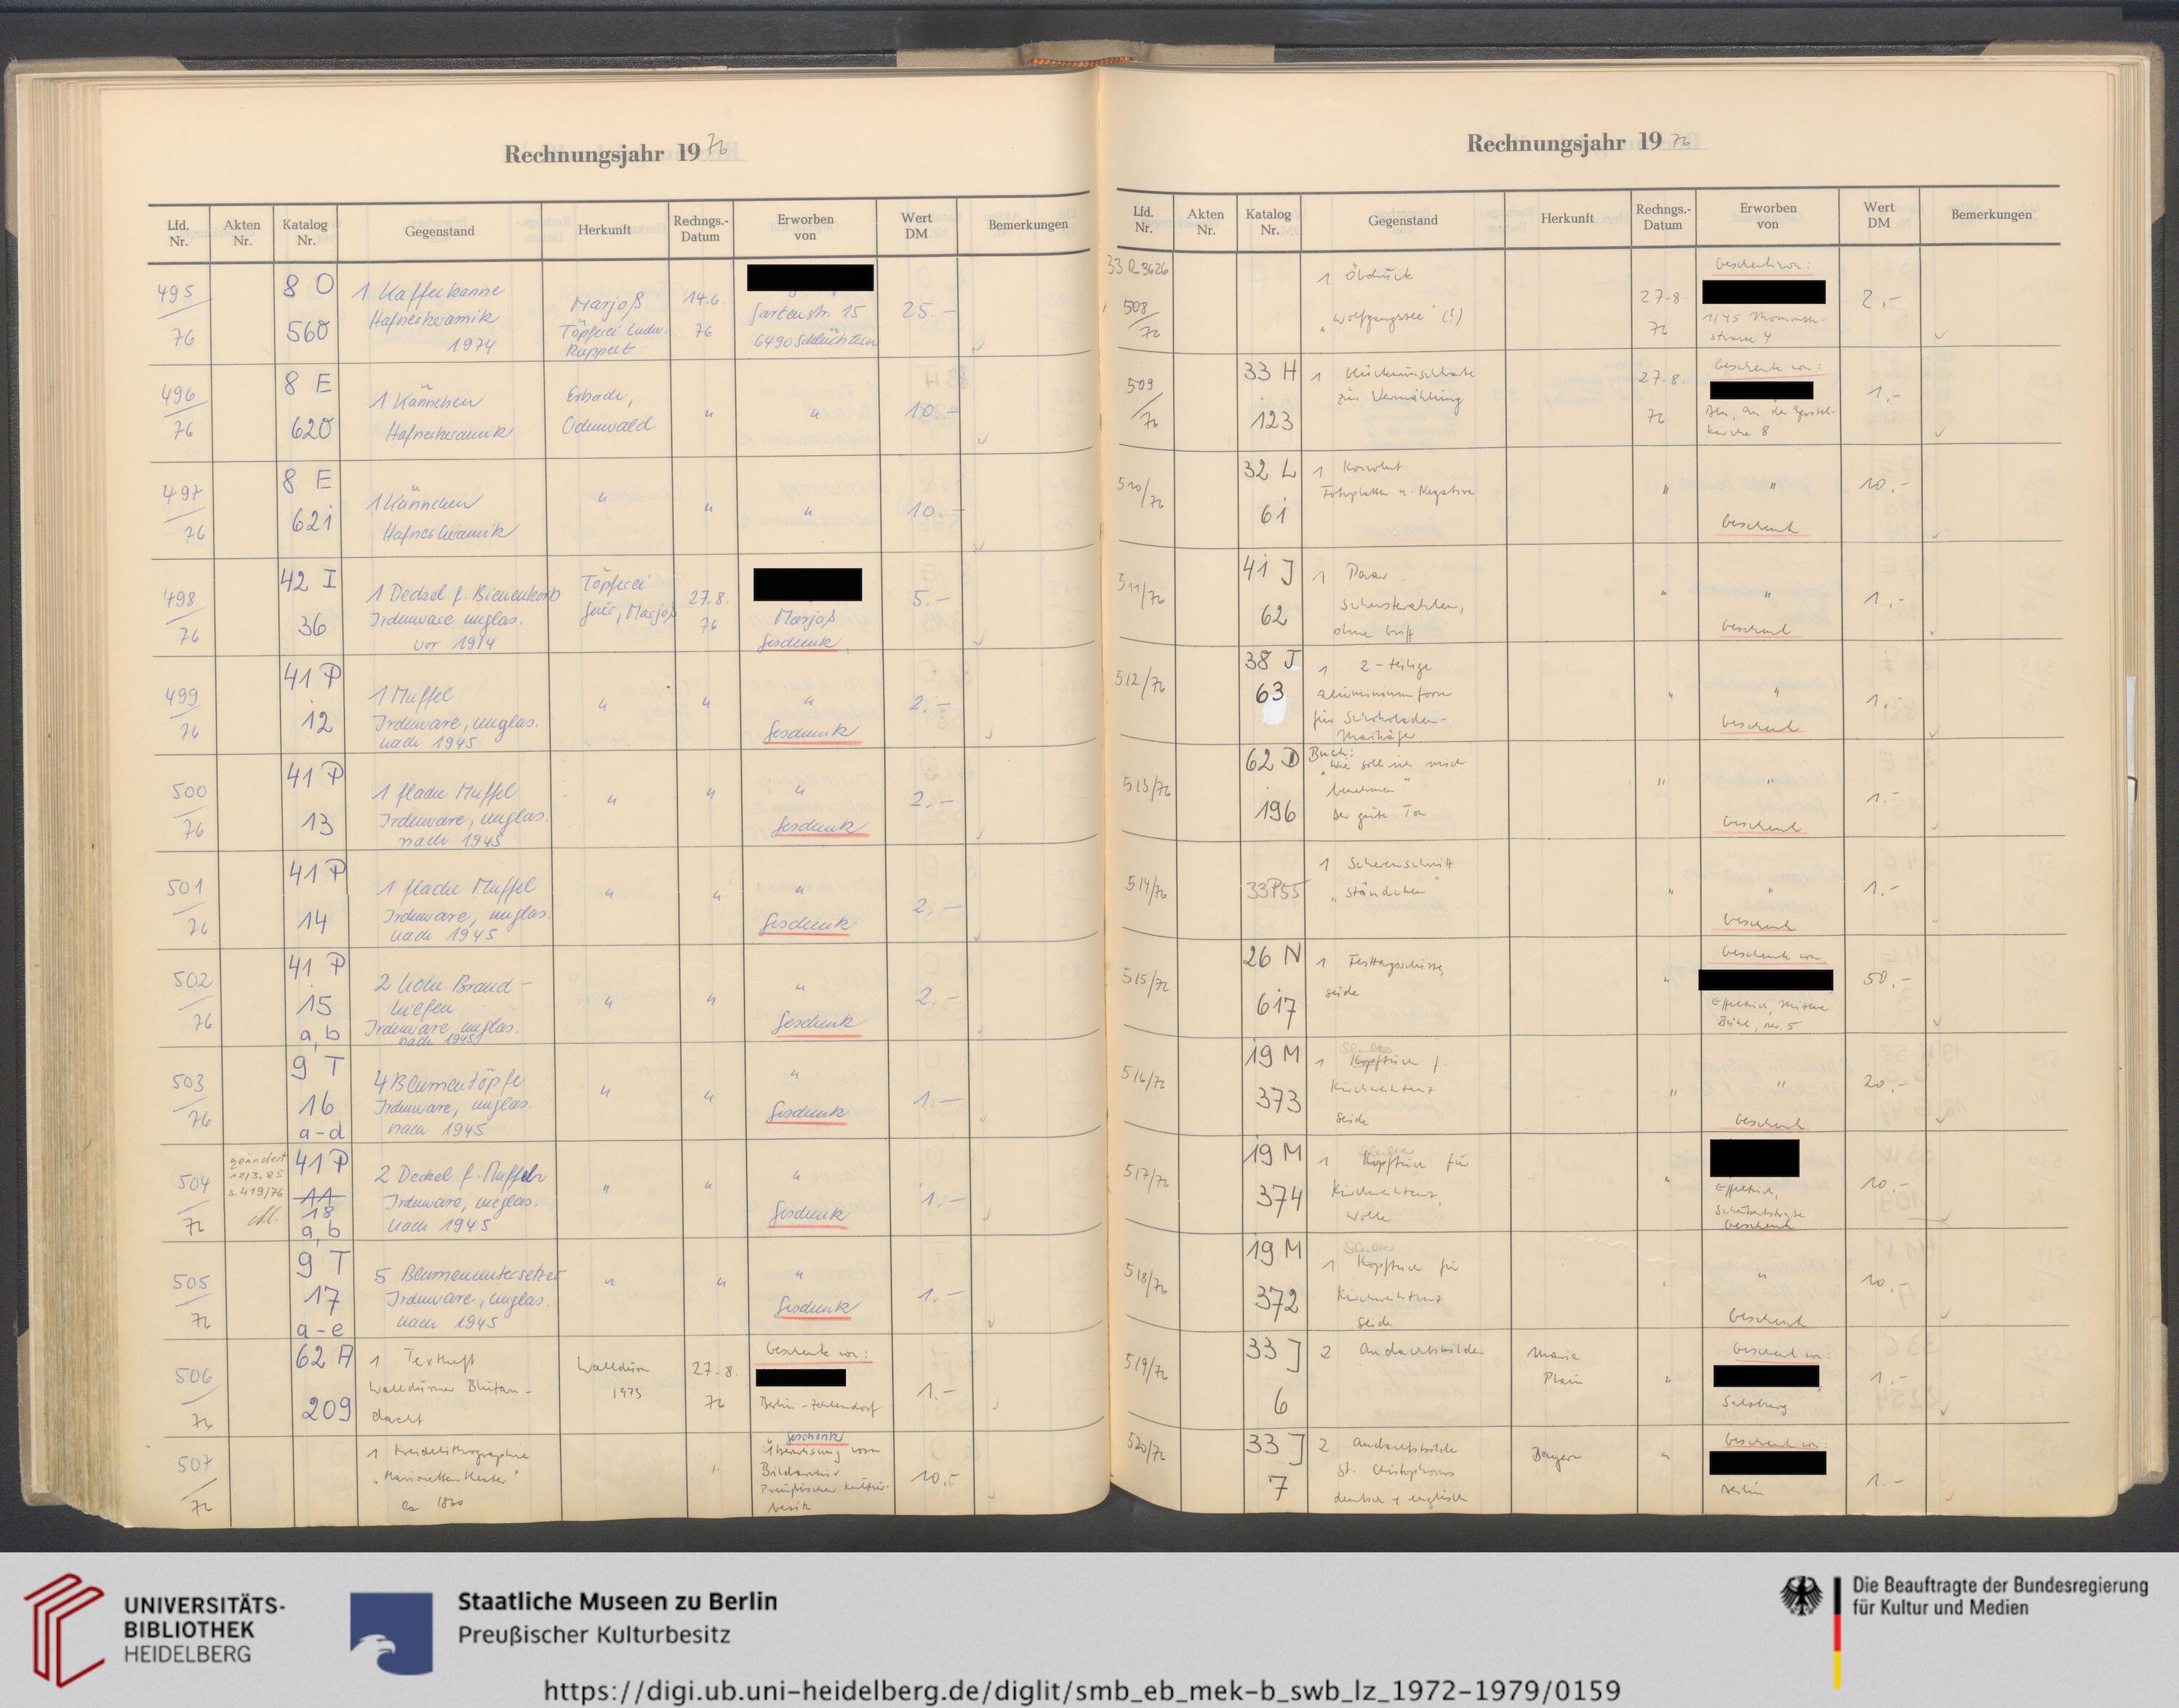 Rechnungsjahr 1976
Lfd. Nr.
Akten Nr.
Katalog Nr.
Gegenstand
Herkunft
Rechngs.-Datum
Erworben von
Wert DM
Bemerkungen
495/76
8 O 560
1 Kaffeekanne
Hafnerkeramik
1974
Marjoß
Töpferei Ludw.
Ruppert
14.6.
76
Gartenstr. 15
6490 Schlüchtern
25.–
496/76
8 E 620
1 Kännchen
Hafnerkeramik
Erbach,
Odenwald
"
"
10.–
497/76
8 E 621
1 Kännchen
Hafnerkeramik
"
"
"
10.–
498/76
42 I 36
1 Deckel f. Bienenkorb
Irdenware unglas.
vor 1974
Töpferei
27.8.
76
Marjoß
Geschenk
5.–
499/76
41 P 12
1 Muffel
Irdenware, unglas.
nach 1945
"
"
"
Geschenk
2.–
500/76
41 P 13
1 flache Muffel
Irdenware, unglas.
nach 1945
"
"
"
Geschenk
2.–
501/76
41 P 14
1 flache Muffel
Irdenware, unglas.
nach 1945
"
"
"
Geschenk
2.–
502/76
41 P 15 a,b
2 hohe Brand-
Irdenware, unglas.
nach 1945
"
"
"
Geschenk
2.–
503/76
9 T 16 a-d
4 Blumentöpfe
Irdenware, unglas.
nach 1945
"
"
"
Geschenk
1.–
504/76
geändert
12/3.85
s. 419/76
41 P 11 18 a,b
2 Deckel f. Muffeln
Irdenware, unglas.
nach 1945
"
"
"
Geschenk
1.–
505/76
9 T 17 a-e
5 Blumenuntersetzer
Irdenware, unglas.
nach 1945
"
"
"
Geschenk
1.–
506/76
62 A 209
1 Textheft
Walldürner Blutan-
dacht
Walldürn
1973
27.8.
76
Geschenk von:
Berlin-Zehlendorf
1.–
507/76
1 Kreidelithographie
"Marionetten theater"
ca 1860
"
Geschenk
Überweisung vom
Bildarchiv
Preußischer Kultur-
besitz
10.–
Rechnungsjahr 1976
Lfd. Nr.
Akten Nr.
Katalog Nr.
Gegenstand
Herkunft
Rechngs.-Datum
Erworben von
Wert DM
Bemerkungen
33 R 3626
508/76
1 Öldruck
"Wolfgangssee" (?)
27.8.
76
Geschenk von:
1/45
strasse 4
2.–
509/76
33 H 123
1 Glückwunschkarte
zur Vermählung
27.8.
76
Geschenk von:
Bln, An der Apostel-
kirche 8
1.–
510/76
32 L 61
1 Konvolut
Fotoplatten u. Negative
"
"
Geschenk
10.–
511/76
41 J 62
1 Paar
ohne Griff
"
"
Geschenk
1.–
512/76
38 J 63
1 2-teilige
Aluminiumform
für Schokoladen-
Maikäfer
"
"
Geschenk
1.–
513/76
62 D 196
Buch:
"Wie soll ich mich
benehmen"
Der gute Ton
"
"
Geschenk
1.–
514/76
33P55
1 Scherenschnitt
"Ständchen"
"
"
Geschenk
1.–
515/76
26 N 617
1 Festtagsschürze,
Seide
"
Geschenk von
Effeltrich, Mittlere
Bühl, Nr. 5
50.–
516/76
19 M 373
Schulter
1 Kopftuch f.
Kirchweihtanz
Seide
"
"
Geschenk
20.–
517/76
19 M 374
Schulter
1 Kopftuch für
Kirchweihtanz,
Wolle
"
Effeltrich,
Schubertstrasse
Geschenk
10.–
518/76
19 M 372
Schulter
1 Kopftuch für
Kirchweihtanz
Seide
"
"
Geschenk
10.–
519/76
33 J 6
2 Andachtsbilder
Maria
Plain
"
Geschenk von:
Salzburg
1.–
520/76
33 J 7
2 Andachtsbilder
St. Christophorus
deutsch + englisch
Bayern
"
Geschenk von
Berlin
1.–
UNIVERSITÄTS-
BIBLIOTHEK
HEIDELBERG
Staatliche Museen zu Berlin
Preußischer Kulturbesitz
Die Beauftragte der Bundesregierung
für Kultur und Medien
https://digi.ub.uni-heidelberg.de/diglit/smb_eb_mek-b_swb_lz_1972-1979/0159